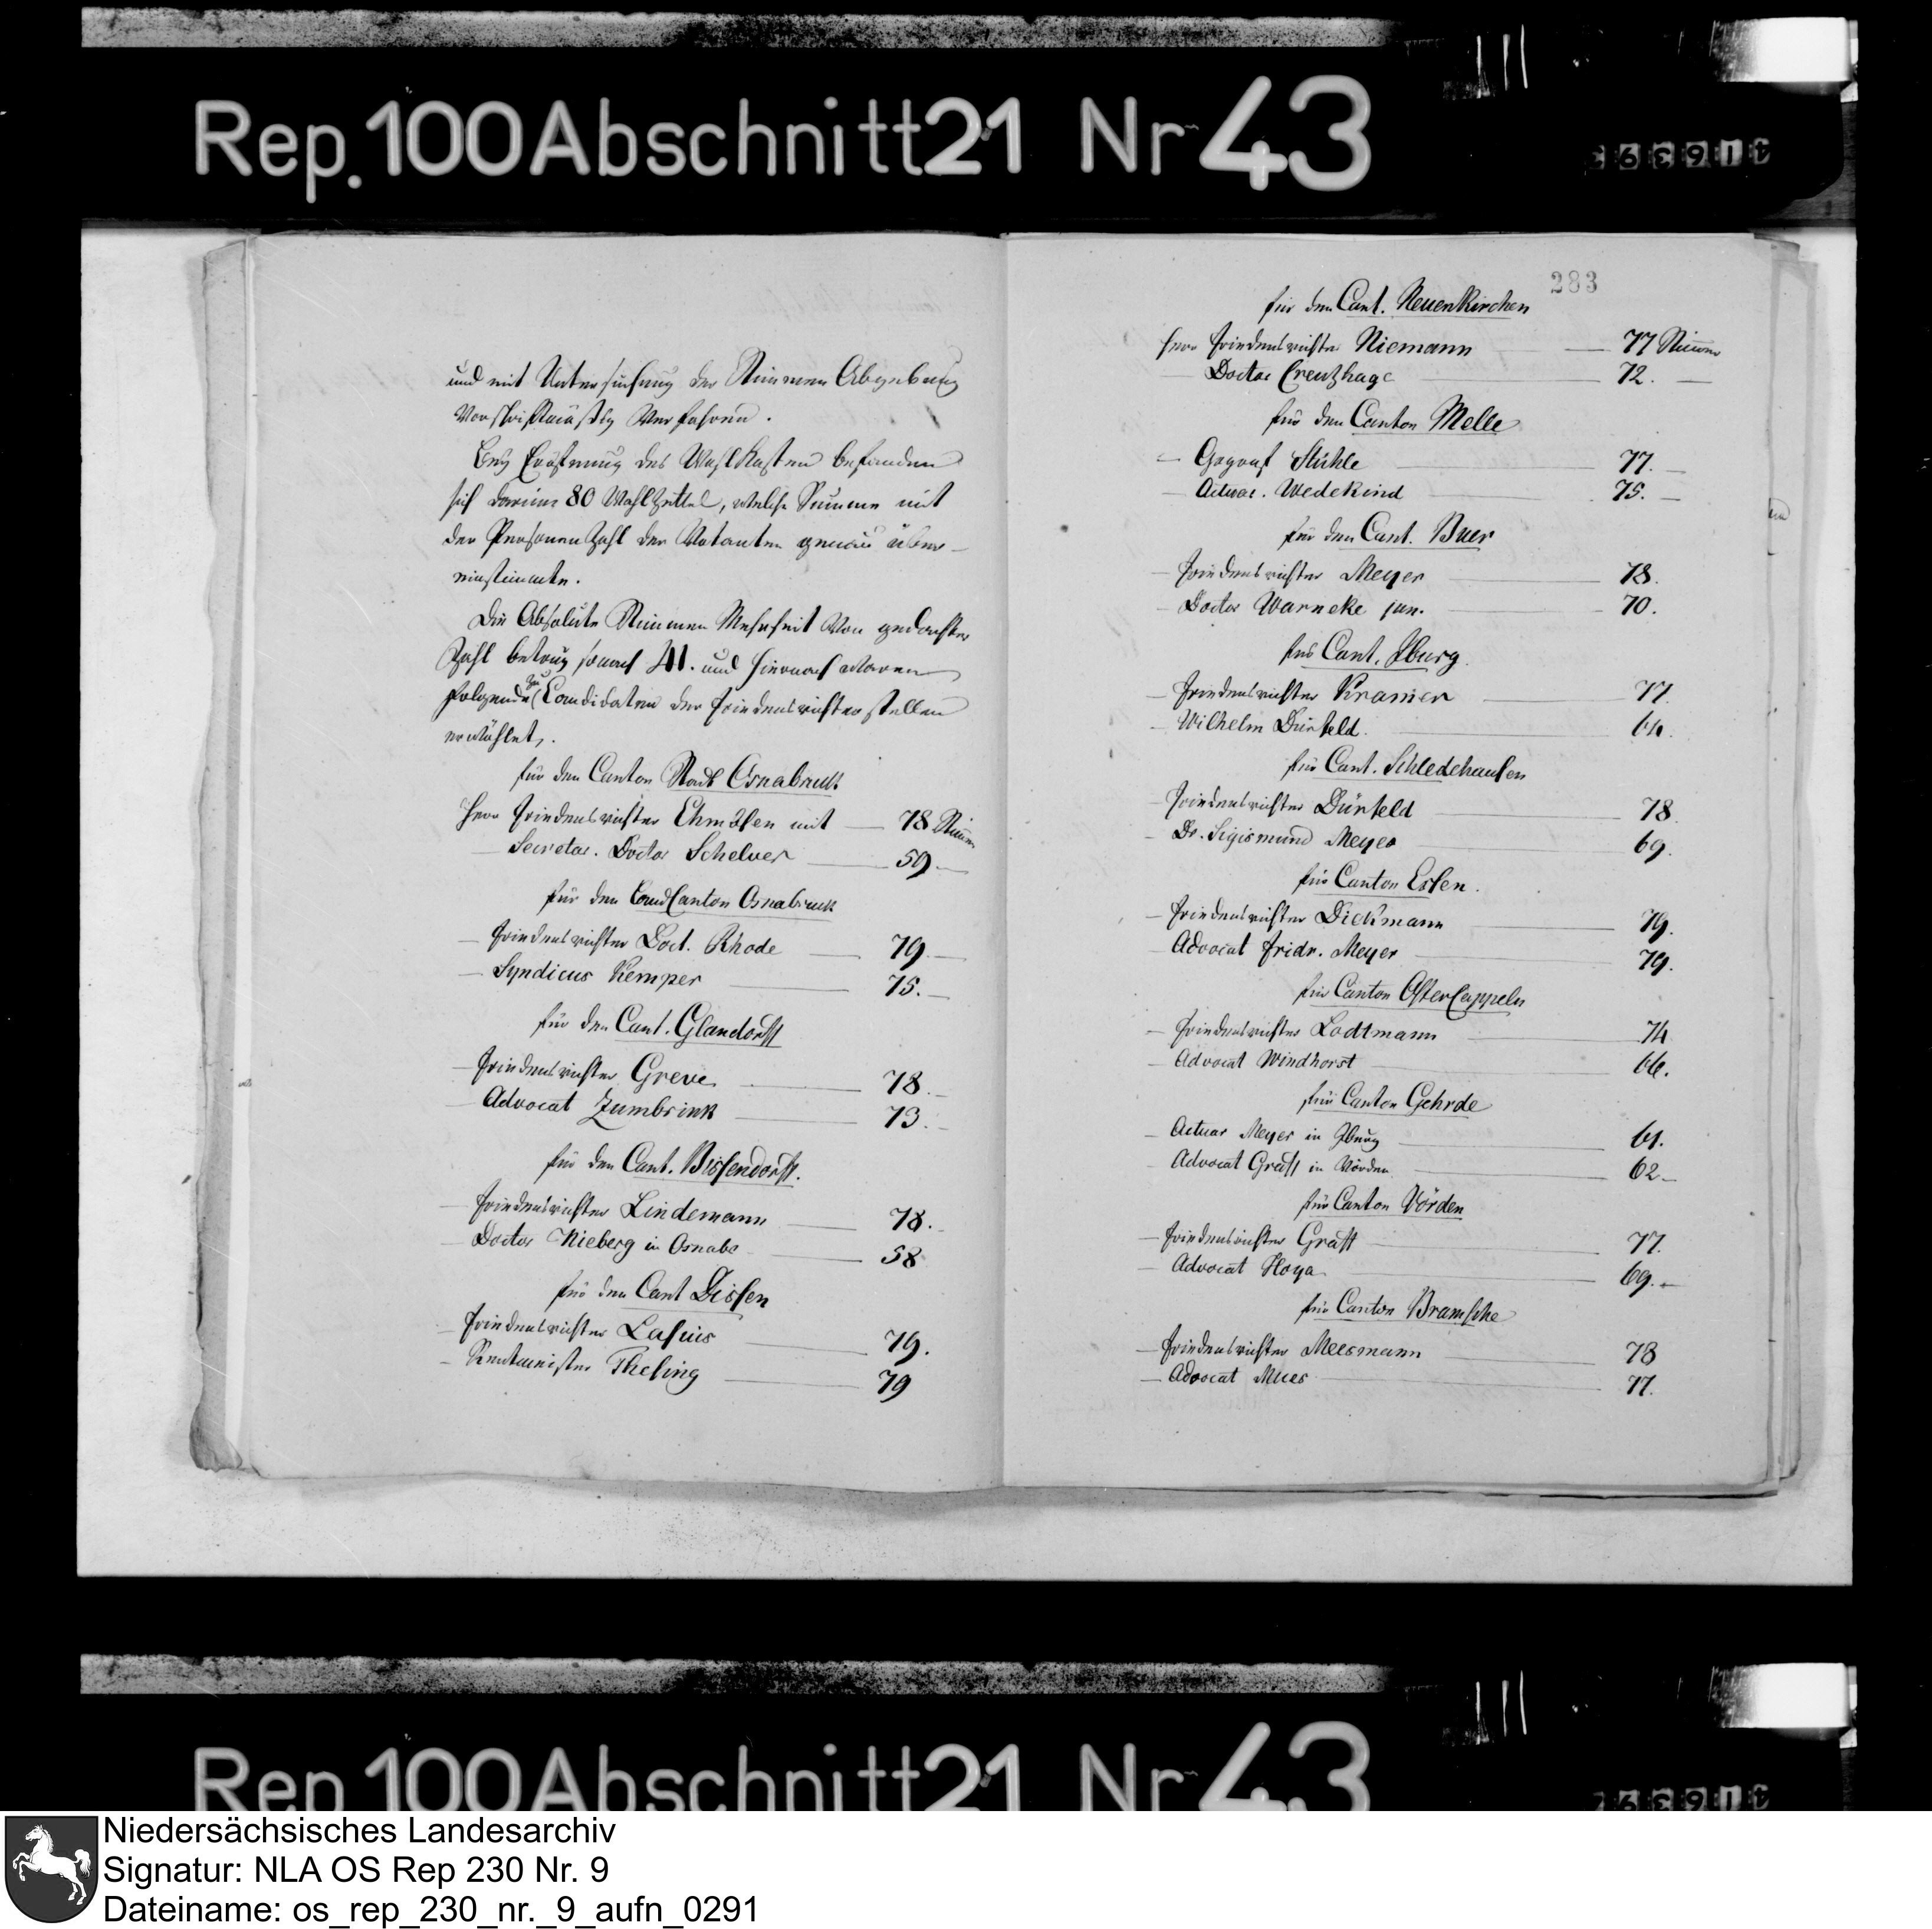 Rep. 100 Abschnitt 21 Nr 43
und mit Untersuchung der Stimmen Abgebung
Vorschriftmäßig Verfahren.
Bey Eröfnung des Wahlkasten befanden
sich darinn 80 Wahlzettel, welche Summe mit
der Personenzahl der Votanten genau über-
einstimmte.
Die Absolute Stimmen Mehrheit Von gedachter
Zahl betrug sonach 41. und hiernach waren
folgende zu Candidaten der Friedensrichter stellen
erwählet,.
für den Canton Stadt Osnabruck
Herr Friedensrichter Ehmbsen mit 78 Stimen
Secretar. Doctor Schelver 59.
für den Land Canton Osnabruck
Friedensrichter Doct. Rhode 79.
Syndicus Kemper 75.
für den Cant. Glandorff
Friedensrichter Greve 78.
Advocat Zumbrink 73.
für den Cant. Bissendorff.
Friedensrichter Lindemann 78.
Doctor Nieberg in Osnabr 58
für den Cant Dissen
Friedensrichter Lasius 79.
Rentmeister Thesing 79
283
für den Cant. Neuenkirchen
Herr Friedensrichter Niemann 77 Stimmen
Doctor Creutzhage 72.
für den Canton Melle
Gograf Stühle 77.
Actuar. Wedekind 75.
für den Cant. Buer
Friedensrichter Meyer 78.
Doctor Warneke jun. 70.
für Cant. Iburg
Friedensrichter Kramer 77.
Wilhelm Dürfeld 64.
für Cant. Schledehausen
Friedensrichter Dürfeld 78
Dr. Sigismund Meyer 69.
für Canton Essen.
Friedensrichter Dickmann 79.
Advocat Fridr. Meyer 79.
für Canton OsterCappeln
Friedensrichter Lodtmann 74
Advocat Windhorst 66.
für Canton Gehrde
Actuar Meyer in Iburg 61.
Advocat Graff in Vörden 62
für Canton Vörden
Friedensrichter Graff 77.
Advocat Hoya 69.
für Canton Bramsche
Friedensrichter Meesmann 78
Advocat Mues 77.
Rep 100 Abschnitt 21 Nr 43
Niedersächsisches Landesarchiv
Signatur: NLA OS Rep 230 Nr. 9
Dateiname: os_rep_230_nr._9_aufn_0291